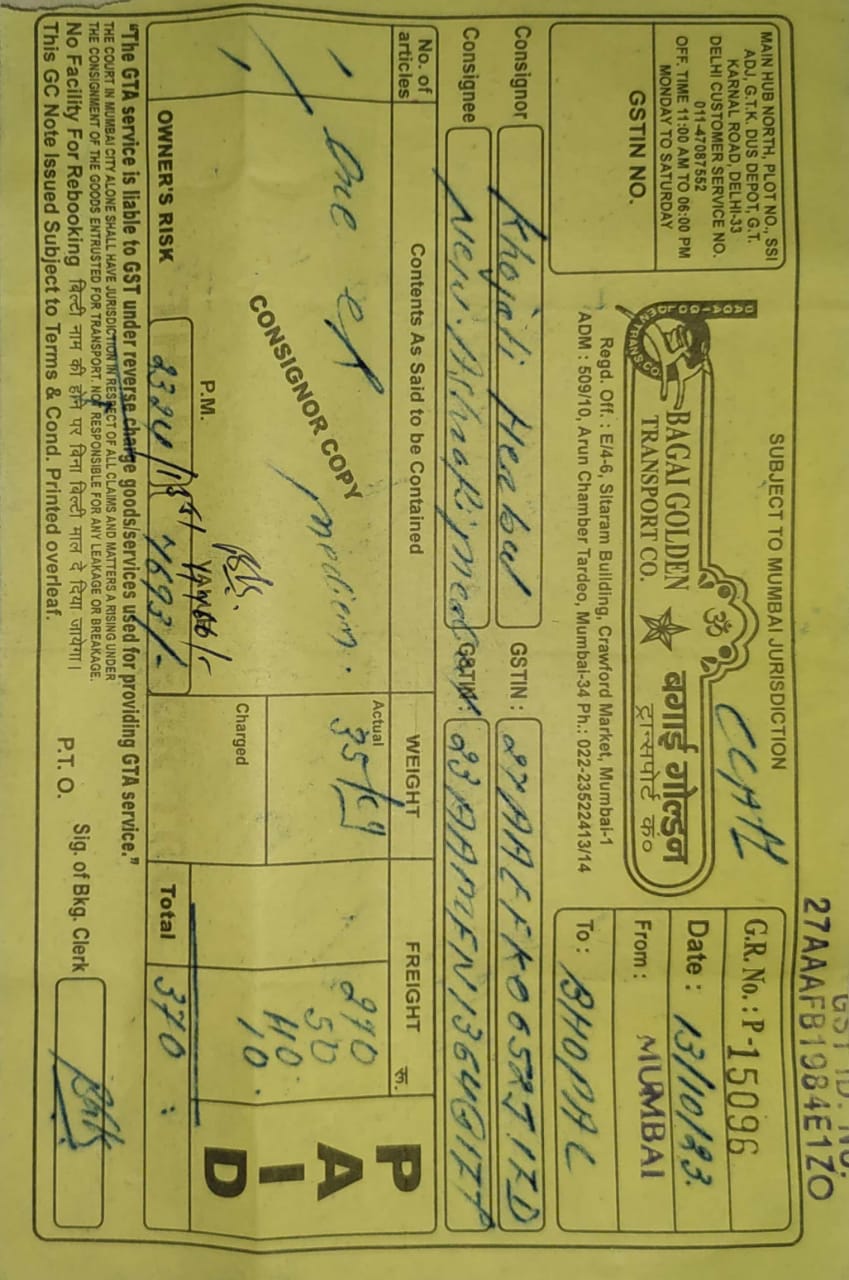 GST ID. NO.
27AAAFB1984E1ZO
MAIN HUB NORTH, PLOT NO., SSI
ADJ, G.T.K. DUS DEPOT, G.T.
KARNAL ROAD, DELHI-33
DELHI CUSTOMER SERVICE NO.
011-47087552
OFF. TIME 11:00 AM TO 06:00 PM
MONDAY TO SATURDAY
GSTIN NO.
SUBJECT TO MUMBAI JURISDICTION
ॐ
BAGAI GOLDEN
TRANSPORT CO.
बगाई गोल्डन
ट्रान्सपोर्ट कं०
Regd. Off. : E/4-6, Sitaram Building, Crawford Market, Mumbai-1
ADM : 509/10, Arun Chamber Tardeo, Mumbai-34 Ph.: 022-23522413/14
G.R. No. : P-15096
Date : 13/10/23.
From : MUMBAI
To : BHOPAL
Consignor Khojati Herbal GSTIN :
Consignee New. Ashrafi GSTIN :
No. of articles Contents As Said to be Contained WEIGHT FREIGHT रू.
1 One
CONSIGNOR COPY
Actual 35 kg
Charged
270
50
40.
10.
PAID
P.M.
OWNER'S RISK
Total 370
"The GTA service is liable to GST under reverse charge goods/services used for providing GTA service."
THE COURT IN MUMBAI CITY ALONE SHALL HAVE JURISDICTION IN RESPECT OF ALL CLAIMS AND MATTERS A RISING UNDER
THE CONSIGNMENT OF THE GOODS ENTRUSTED FOR TRANSPORT. NOT RESPONSIBLE FOR ANY LEAKAGE OR BREAKAGE.
No Facility For Rebooking बिल्टी नाम की होने पर बिना बिल्टी माल दे दिया जायेगा।
This GC Note Issued Subject to Terms & Cond. Printed overleaf.
P.T.O.
Sig. of Bkg. Clerk